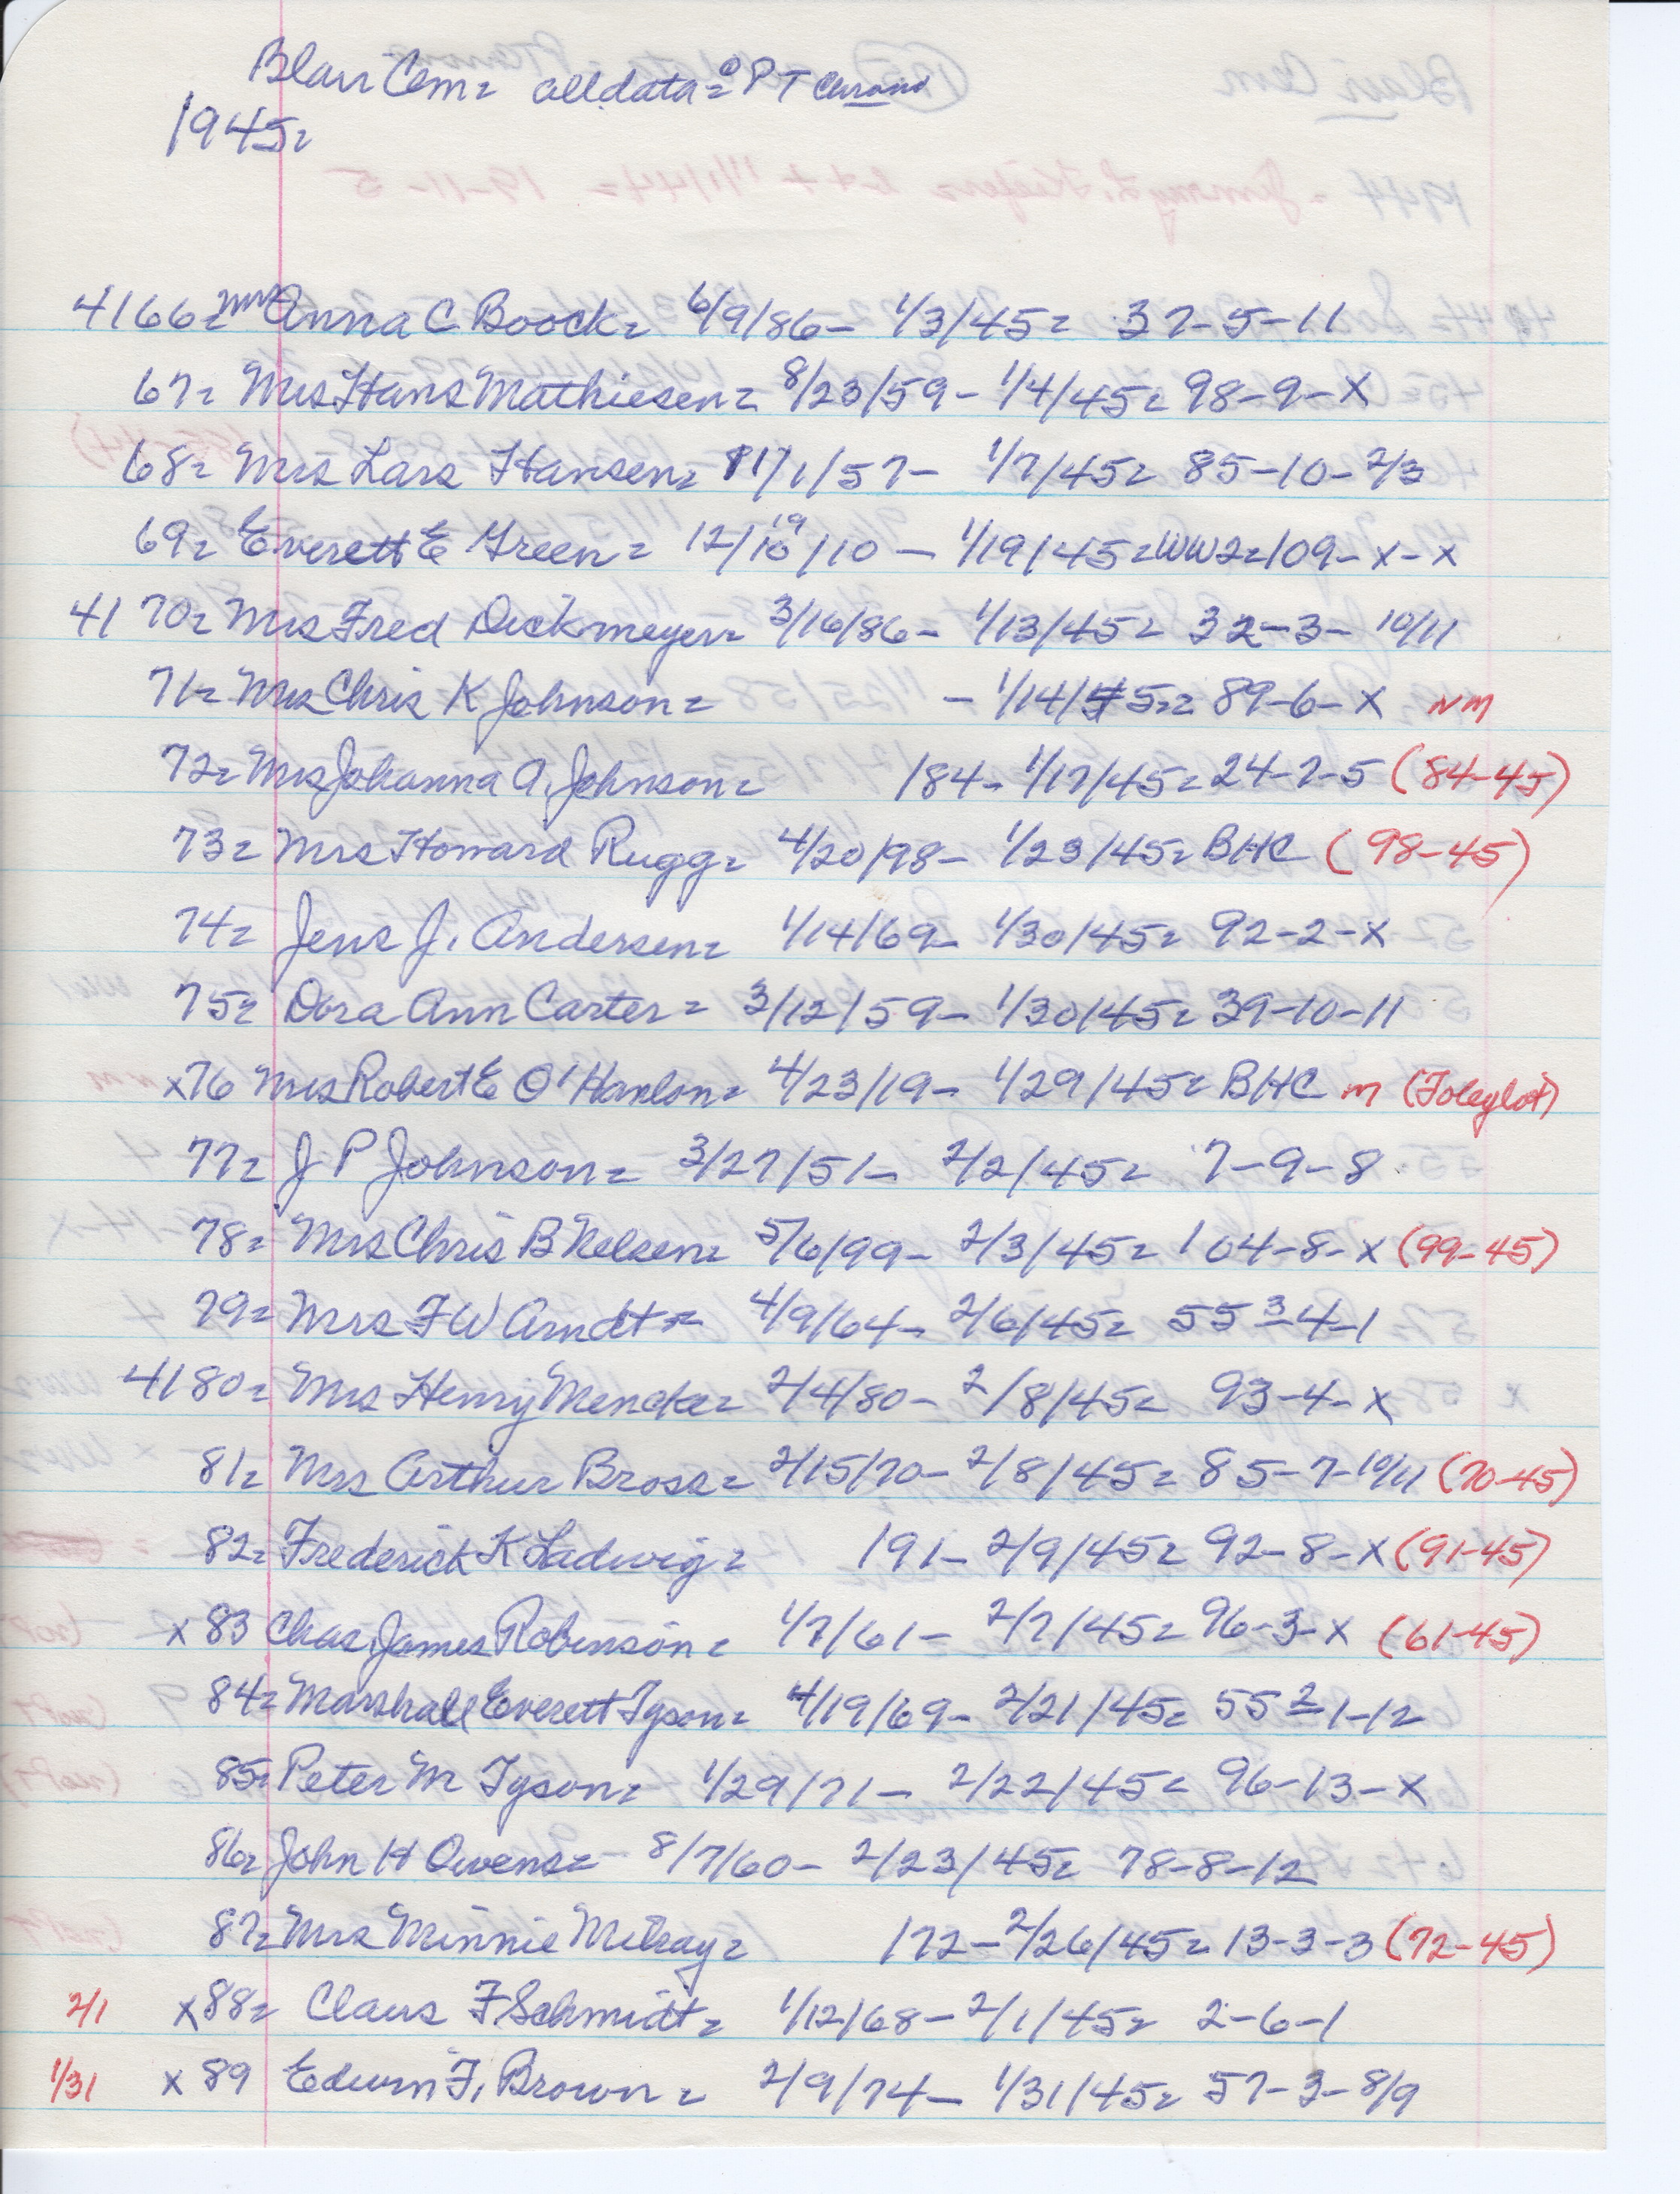 Blair Cem= all data= P T
1945=
4166= Mrs Anna C Boock= 6/9/86- 1/3/45= 37-5-11
67= Mrs Hans Mathiesen= 8/23/59- 1/4/45= 98-9-X
68= Mrs Lars Hansen= 11/1/57- 1/7/45= 85-10-2/3
69= Everett E Green= 12/19/10 - 1/19/45= WW2= 109-x-x
4170= Mrs Fred Dickmeyer= 3/16/86- 1/13/45= 32-3-10/11
71= Mrs Chris K Johnson= - 1/14/45= 89-6-X NM
72= Mrs Johanna A. Johnson= 184- 1/17/45= 24-7-5 (84-45)
73= Mrs Howard Rugg= 4/20/98- 1/23/45= BHC (98-45)
74= Jens J. Andersen= 1/14/69- 1/30/45= 92-2-X
75= Dora Ann Carter= 3/12/59- 1/30/45= 39-10-11
x76 Mrs Robert E O'Hanlon= 4/23/19- 1/29/45= BHC m (Foley lot)
77= J P Johnson= 3/27/51- 2/2/45= 7-9-8
78= Mrs Chris B Nelsen= 5/6/99- 2/3/45= 104-8-X (99-45)
79= Mrs F W Arndt= 4/9/64- 2/6/45= 55 3-4-1
4180= Mrs Henry Mencke= 2/4/80- 2/8/45= 93-4-X
81= Mrs Arthur Bross= 2/15/70- 2/8/45= 85-7-10/11 (70-45)
82= Frederick K Ladwig= 191- 2/9/45= 92-8-X (91-45)
x 83 Chas. James Robinson= 1/7/61- 2/7/45= 96-3-X (61-45)
84= Marshall Everett Tyson= 4/19/69- 2/21/45= 55 2-1-12
85= Peter M Tyson= 1/29/71- 2/22/45= 96-13-X
86= John H Owens= 8/7/60- 2/23/45= 78-8-12
87= Mrs Minnie 172- 2/26/45= 13-3-3 (72-45)
2/1 x88= Claus F Schmidt= 1/12/68- 2/1/45= 2-6-1
1/31 x 89 Edwin F. Brown= 2/9/74- 1/31/45= 57-3-8/9